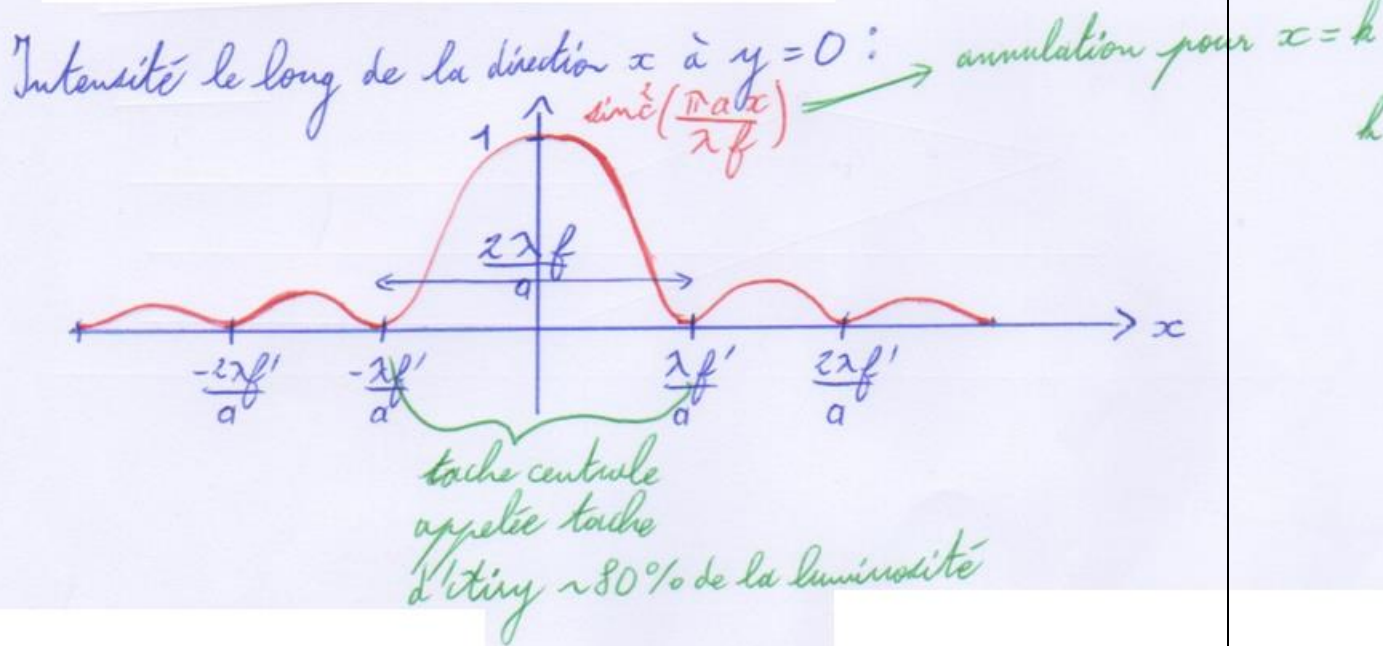 Intensité le long de la direction x à y = 0 : annulation pour x = k
sinc²(πax/λf)
k
1
2λf/a
x
-2λf'/a -λf'/a λf'/a 2λf'/a
tache centrale
appelée tache
d'Airy ~ 80% de la luminosité